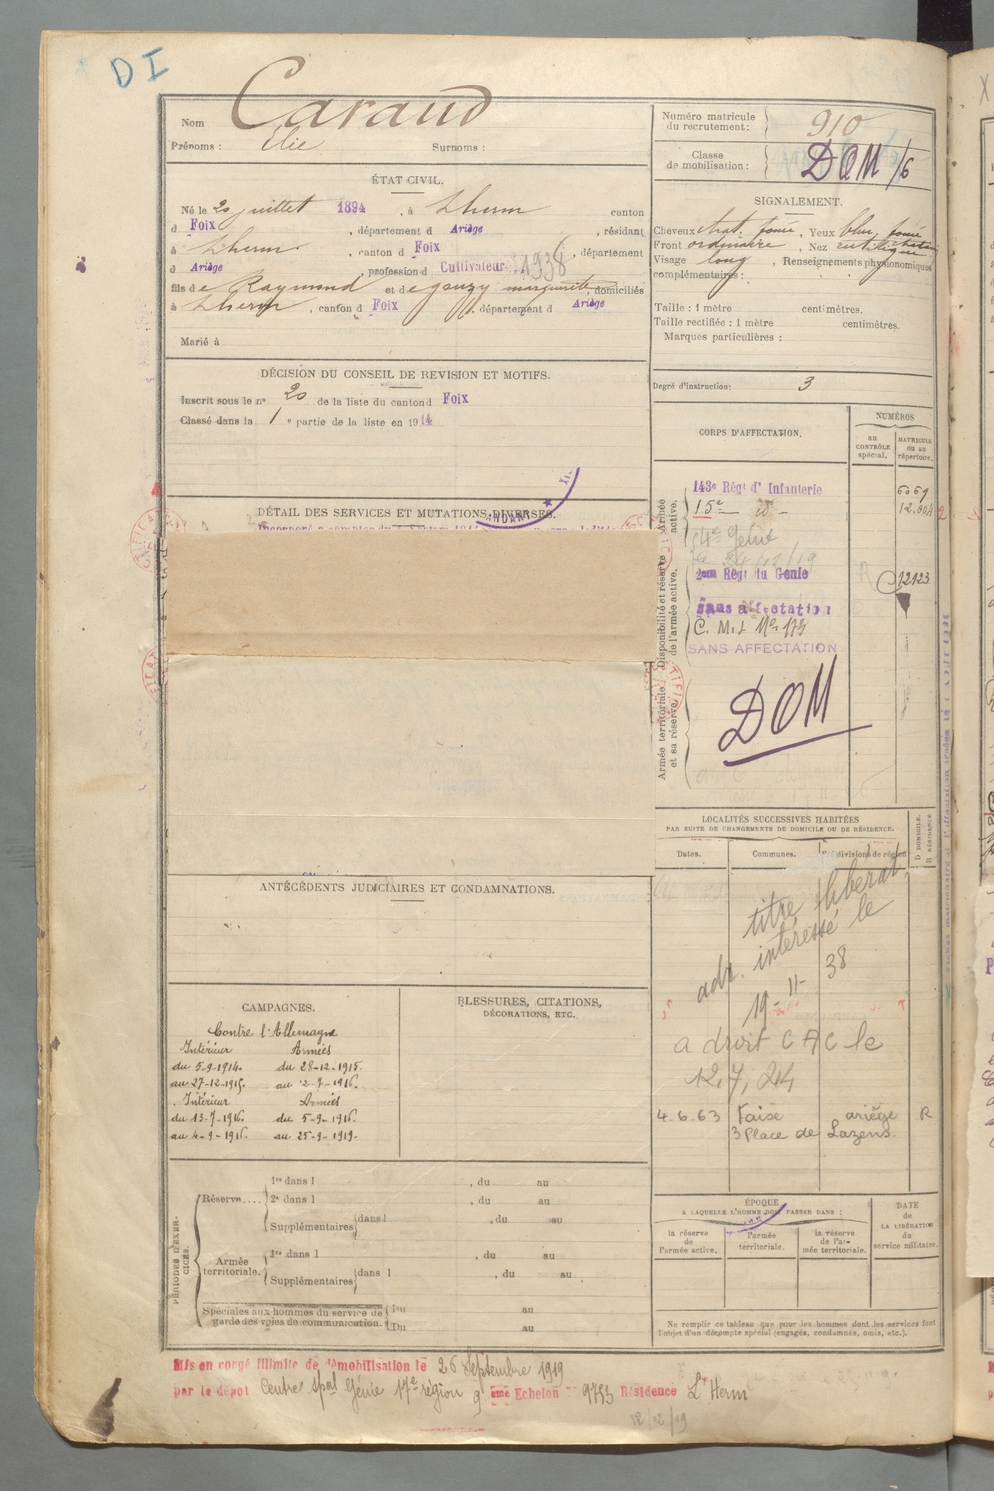 DI
Nom Caraud
Prénoms : Elie Surnoms :
Numéro matricule du recrutement : 910
Classe de mobilisation : DOM /6
ÉTAT CIVIL.
Né le 20 juillet 1894, à Lherm canton
d Foix, département d Ariège, résidant
à Lherm, canton d Foix, département
d Ariège, profession d Cultivateur 1938
fils de Raymond et de gouzy marguerite, domiciliés
à Lherm, canton d Foix, département d Ariège
Marié à
SIGNALEMENT.
Cheveux chat. foncé, Yeux bleu foncé
Front ordinaire, Nez rectiligne
Visage long, Renseignements physionomiques
complémentaires :
Taille : 1 mètre centimètres.
Taille rectifiée : 1 mètre centimètres.
Marques particulières :
Degré d'instruction : 3
DÉCISION DU CONSEIL DE REVISION ET MOTIFS.
Inscrit sous le n° 20 de la liste du canton d Foix
Classé dans la 1 e partie de la liste en 1914
DÉTAIL DES SERVICES ET MUTATIONS DIVERSES.
CORPS D'AFFECTATION.
NUMÉROS
au CONTRÔLE spécial.
MATRICULE ou au répertoire.
Armée active.
Disponibilité et réserve de l'armée active.
Armée territoriale et sa réserve.
143e Régt d'Infanterie 6069
15e - d° -
4e Génie
2em Régt du Génie 12123
Sans affectation
C. M. I. No 173
SANS AFFECTATION
DOM
LOCALITÉS SUCCESSIVES HABITÉES
PAR SUITE DE CHANGEMENTS DE DOMICILE OU DE RÉSIDENCE.
Dates. Communes. Subdivisions de région
D DOMICILE.
R RÉSIDENCE.
titre libérat
adr. intéressé le
19-11-38
a droit CAC le
12,7,24
4.6.63 ariège R
3 Place de Lazens
ANTÉCÉDENTS JUDICIAIRES ET CONDAMNATIONS.
CAMPAGNES.
Contre l'Allemagne
Intérieur Armées
du 5-9-1914. du 28-12-1915.
au 27-12-1915. au 12-7-1916.
Intérieur Armées
du 13-7-1916. du 5-9-1916.
au 4-9-1916. au 25-9-1919.
BLESSURES, CITATIONS,
DÉCORATIONS, ETC.
PÉRIODES D'EXERCICES.
Réserve....
1re dans l , du au
2e dans l , du au
Supplémentaires dans l , du au
Armée territoriale.
1re dans l , du au
Supplémentaires dans l , du au
Spéciales aux hommes du service de garde des voies de communication.
Du au
Du au
ÉPOQUE
A LAQUELLE L'HOMME DOIT PASSER DANS :
la réserve de l'armée active.
l'armée territoriale.
la réserve de l'armée territoriale.
DATE de LA LIBÉRATION du service militaire.
Ne remplir ce tableau que pour les hommes dont les services font
l'objet d'un décompte spécial (engagés, condamnés, omis, etc.).
Mis en congé illimité de démobilisation le 26 Septembre 1919
par le dépôt Centre Spal Génie 17e région 9 ème Echelon n° 9753 Résidence L'Herm
12/12/19